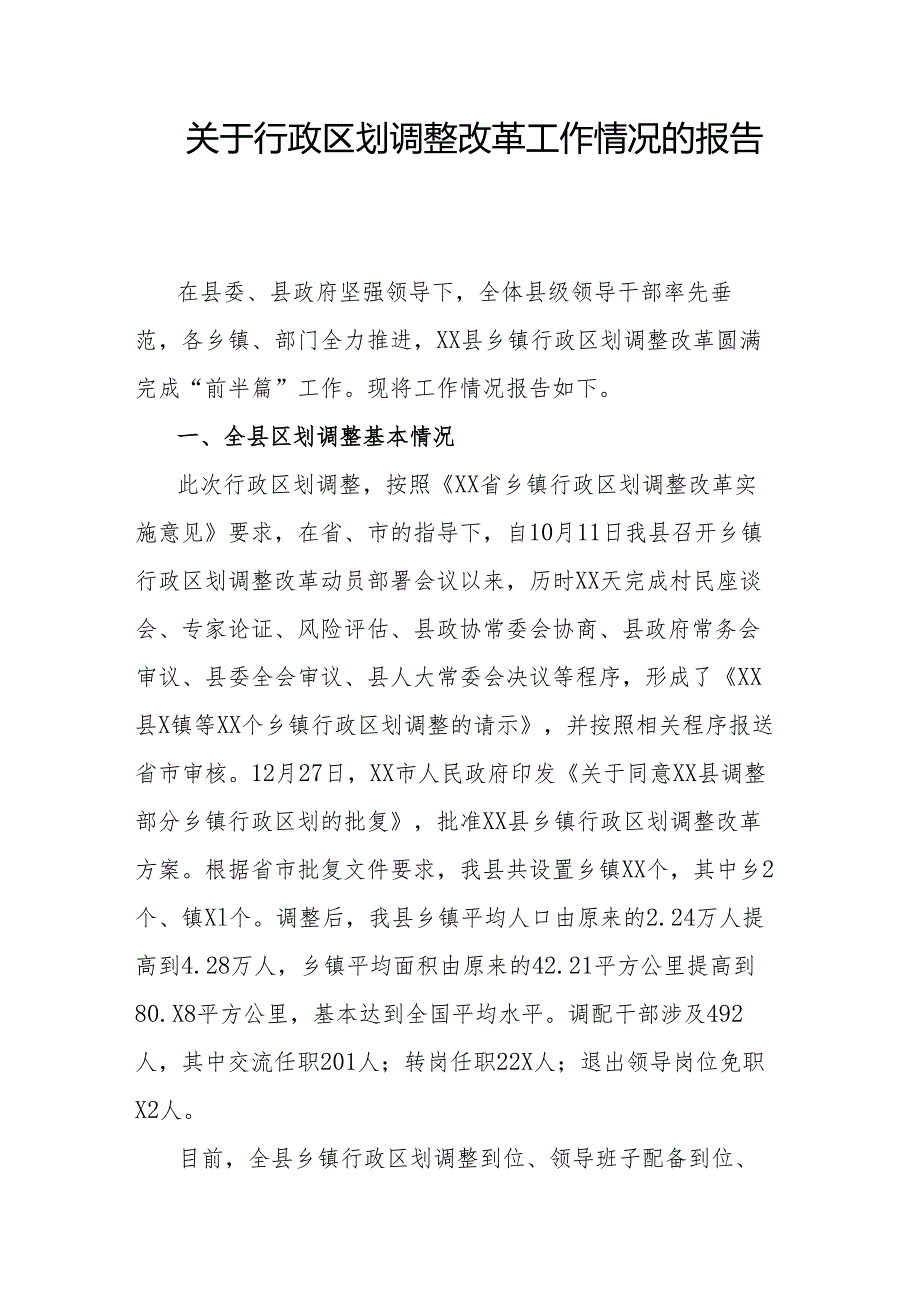 关于行政区划调整改革工作情况的报告
在县委、县政府坚强领导下，全体县级领导干部率先垂
范，各乡镇、部门全力推进，XX县乡镇行政区划调整改革圆满
完成“前半篇”工作。现将工作情况报告如下。
一、全县区划调整基本情况
此次行政区划调整，按照《XX省乡镇行政区划调整改革实
施意见》要求，在省、市的指导下，自10月11日我县召开乡镇
行政区划调整改革动员部署会议以来，历时XX天完成村民座谈
会、专家论证、风险评估、县政协常委会协商、县政府常务会
审议、县委全会审议、县人大常委会决议等程序，形成了《XX
县X镇等XX个乡镇行政区划调整的请示》，并按照相关程序报送
省市审核。12月27日，XX市人民政府印发《关于同意XX县调整
部分乡镇行政区划的批复》，批准XX县乡镇行政区划调整改革
方案。根据省市批复文件要求，我县共设置乡镇XX个，其中乡2
个、镇Xl个。调整后，我县乡镇平均人口由原来的2.24万人提
高到4.28万人，乡镇平均面积由原来的42.21平方公里提高到
80.X8平方公里，基本达到全国平均水平。调配干部涉及492
人，其中交流任职201人；转岗任职22X人；退出领导岗位免职
X2人。
目前，全县乡镇行政区划调整到位、领导班子配备到位、